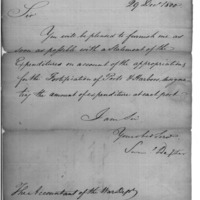 19 Decr 1800
Sir
You will be pleased to furnish me as
soon as possible with a Statement of the
Expenditures on account of the appropriations
for the Fortification of Ports & Harbors
the amount of expenditure at each port
I am Sir
Your obt Servt
Saml Dexter
The Accountant of the War Dept